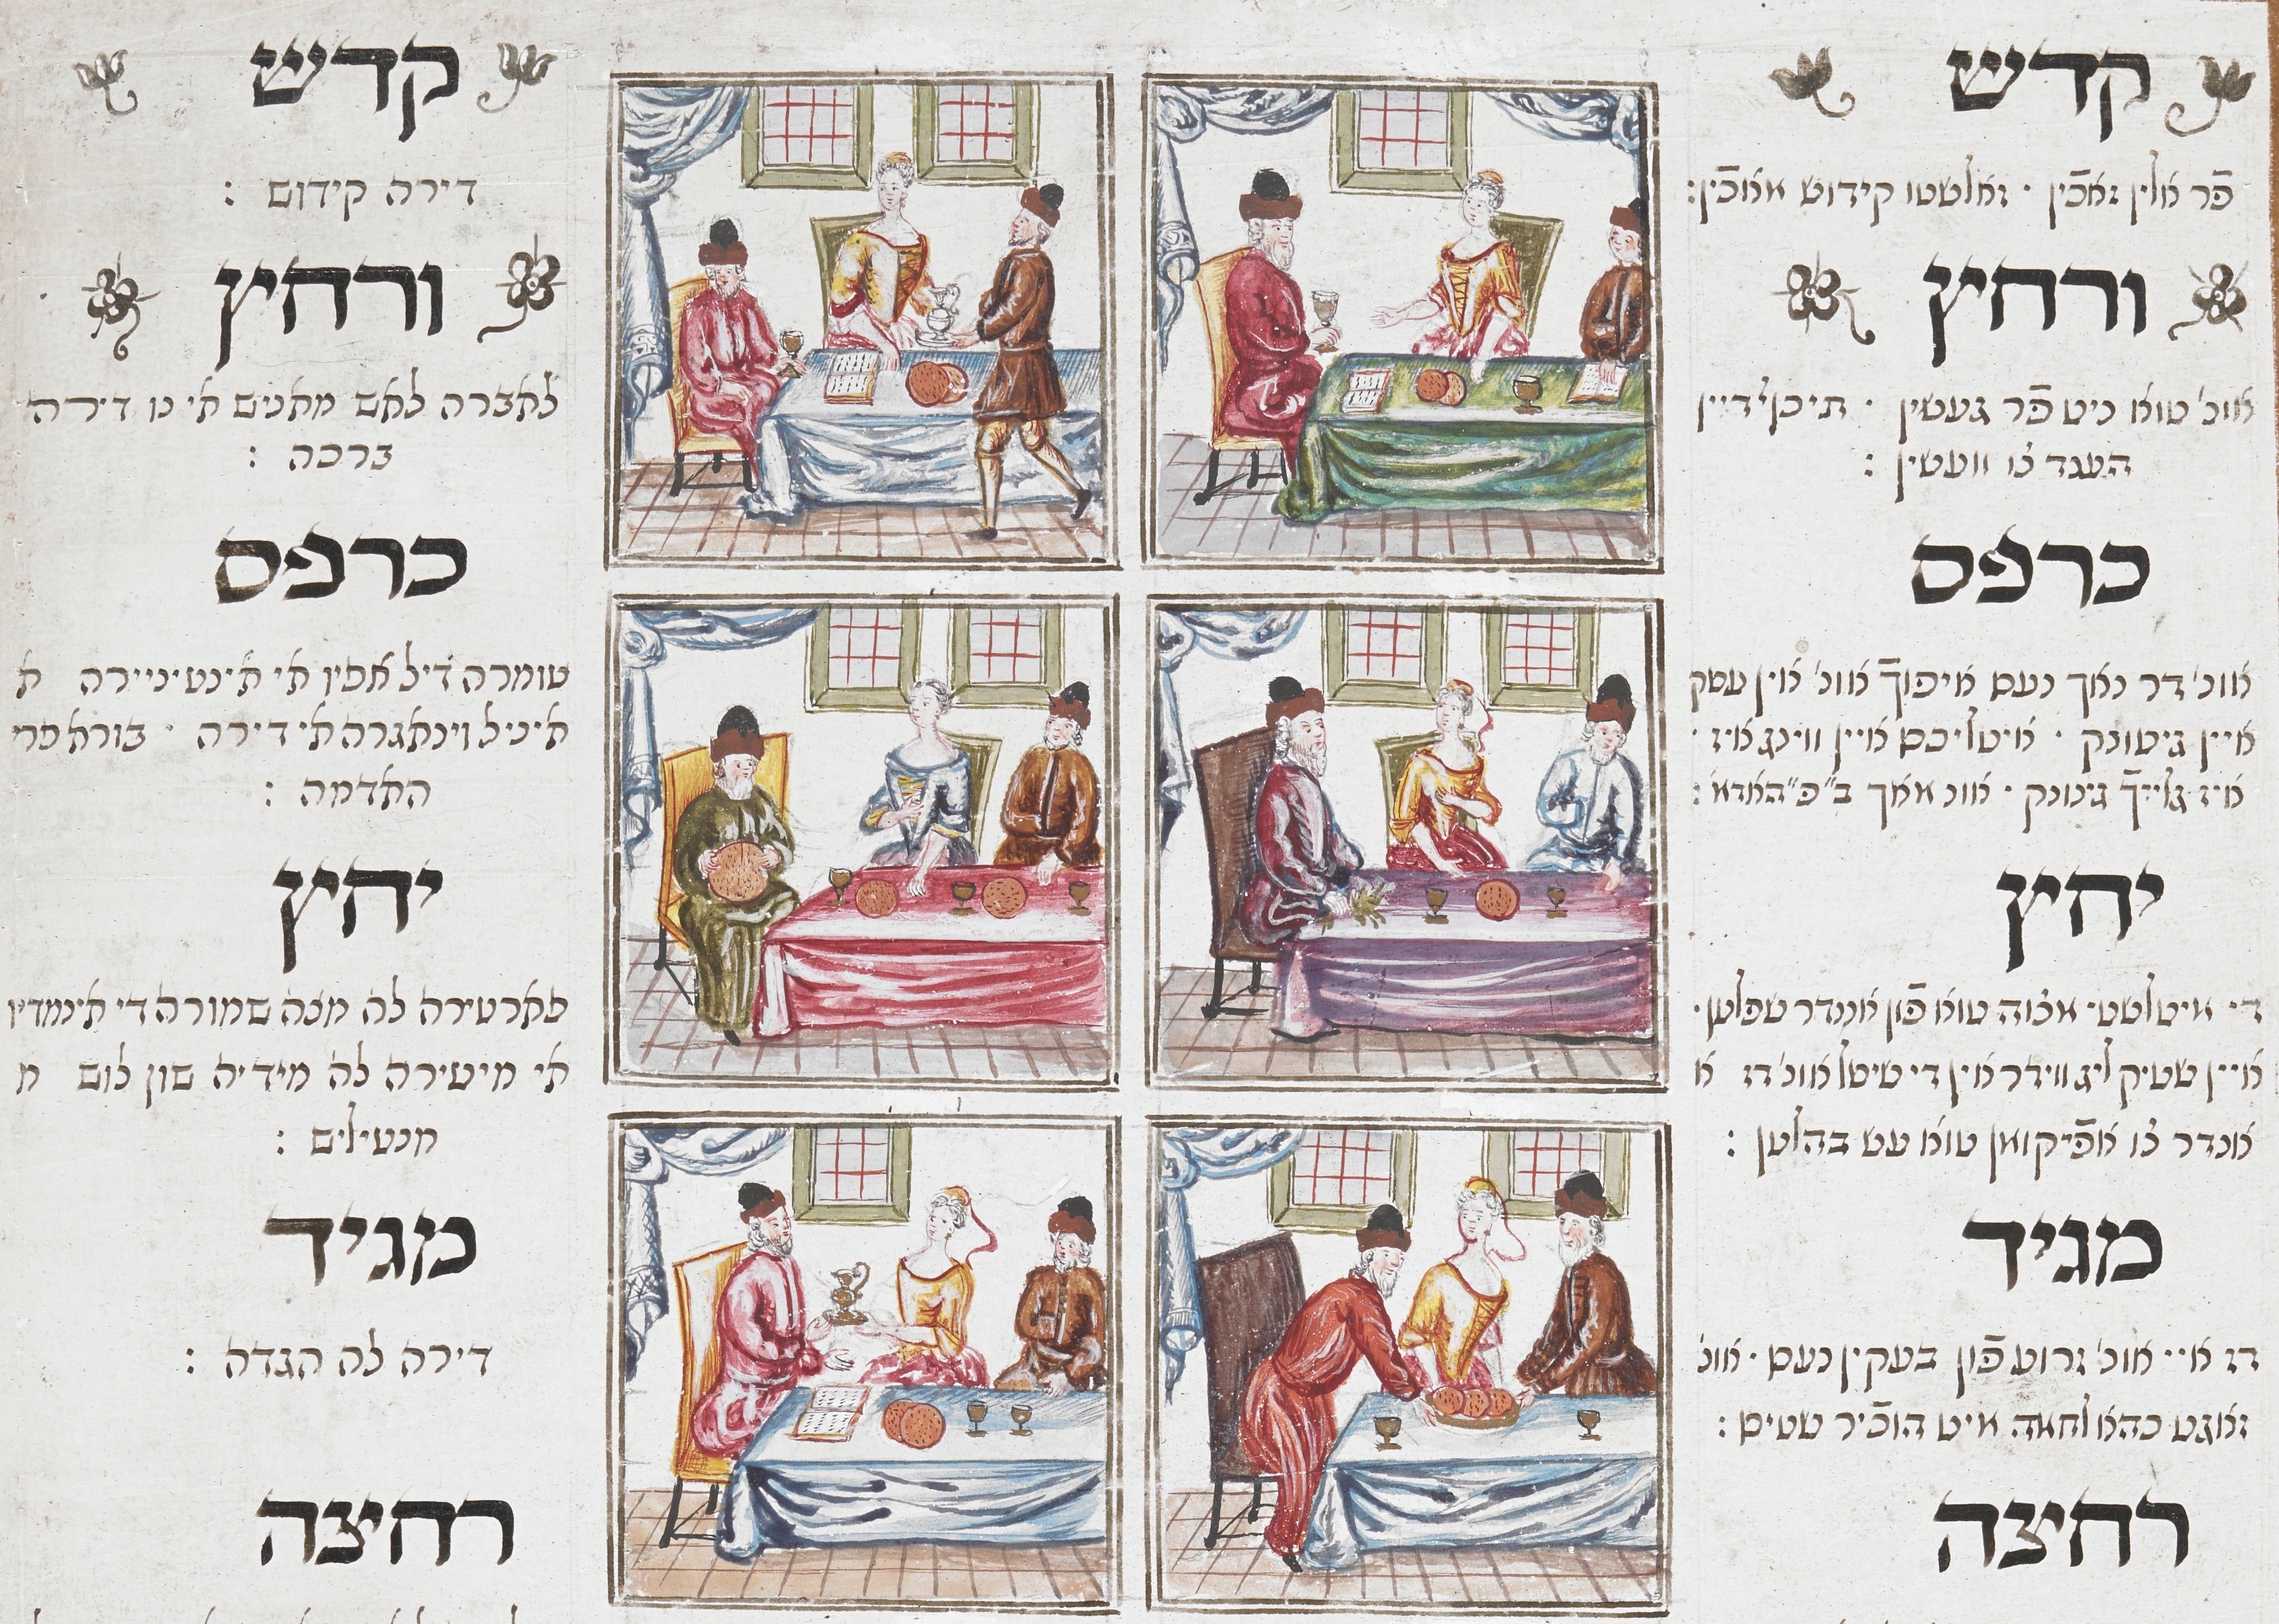 קדש
פֿר אלין זאכֿין · זאלשטו קידוש מאכֿין:
ורחץ
אונ' טוא ניט פֿר געשין ·
העגד צו וועשין :
כרפס
אונ' דר נאך נעם איפוך אונ' אין עסק
איין גיטונק · איטליכס איין ווינג איז ·
איז גלייך גינונק · אונ מאך ב"פ"האדא:
יחץ
די מיטלשט· מצוה טוא פֿון אנדר שפלטן·
איין שטיק ליג ווידר אין די שיסל אונ' דז א
אנדר צו אפֿיקומן טוא עש בהלטן :
מגיד
דז איי אונ' זרוע פֿון בעקין נעם · אונ'
זאגט כהא לחמא מיט הוכֿיר שטים :
רחצה
קדש
דירה קידוש :
ורחץ
לאברה לאש מאניש אי נו דירה
ברכה :
כרפס
טומרה דיל אפיו אי אינטינייירה א
אי ניל וינאגרה אי דירה · בורא פרי
האדמה :
יחץ
פארטירה לה מצה שמורה די אינמדיו
אי מיטירה לה מידיה שון לוש מ
מנטילים :
מגיד
דירה לה הגדה :
רחצה